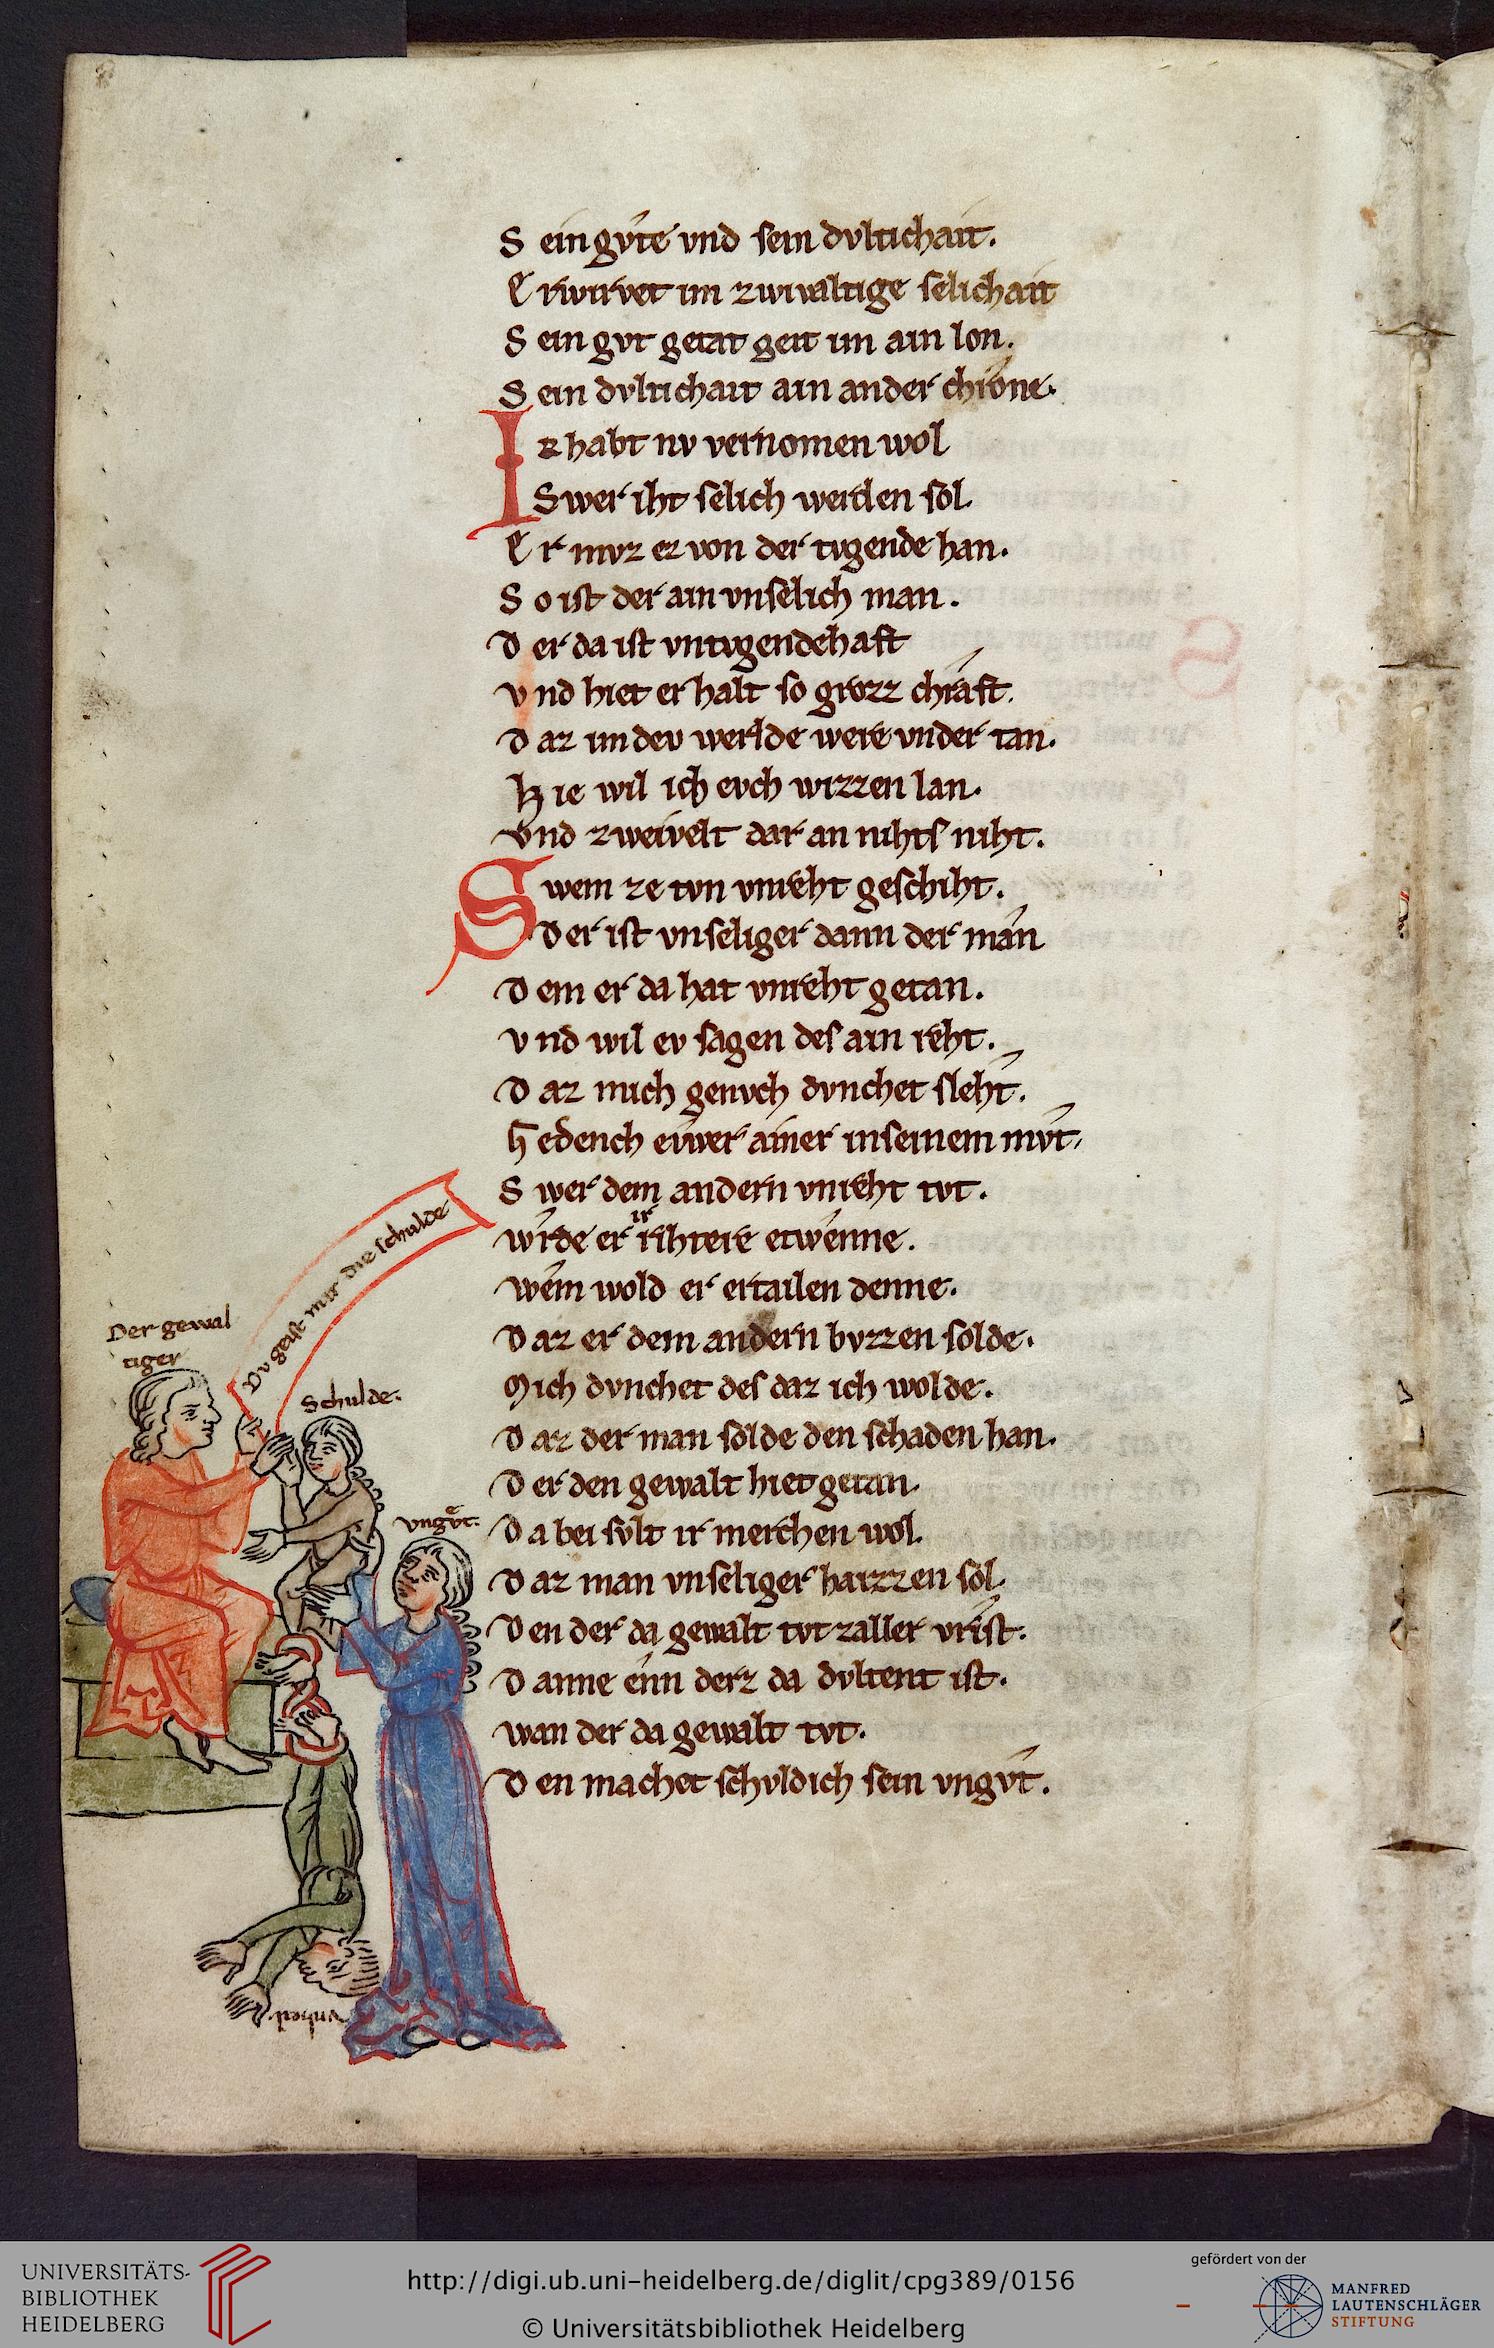 S ein gvte vnd sein dvltichait.
E rwirvet im zwivaltige selichait
S ein gvt getat geit im ain lon.
S ein dvltichait ain ander chrone.
I R habt nv vernomen wol
Swer iht selich werden sol.
E r mvz ez von der tvgende han.
S o ist der ain vnselich man.
D er da ist vntvgendehaft
V nd hiet er halt so grozz chraft.
D az im dev werlde were vnder tan.
H ie wil ich evch wizzen lan.
Vnd zweivelt dar an nihts niht.
S wem ze tvn vnreht geschiht.
Der ist vnseliger dann der man
D em er da hat vnreht getan.
V nd wil ev sagen des ain reht.
D az mich genvch dvnchet sleht.
G edench ewer ainer in seinem mvt.
S wer dem andern vnreht tvt.
Wrde er ir rihtere etwenne.
Wem wold er ertailen denne.
D az er dem andern bvzzen solde.
Mich dvnchet des daz ich wolde.
D az der man solde den schaden han.
D er den gewalt hiet getan.
D a bei svlt ir merchen wol.
D az man vnseliger haizzen sol.
D en der da gewalt tvt zaller vrist.
D anne einn derz da dvltent ist.
Wan der da gewalt tvt.
D en machet schvldich sein vngvt.
Dv geist mir die schulde
Der gewal
tiger
Schulde.
vngvt.
vnheil
UNIVERSITÄTS-
BIBLIOTHEK
HEIDELBERG
http://digi.ub.uni-heidelberg.de/diglit/cpg389/0156
© Universitätsbibliothek Heidelberg
gefördert von der
MANFRED
LAUTENSCHLÄGER
STIFTUNG